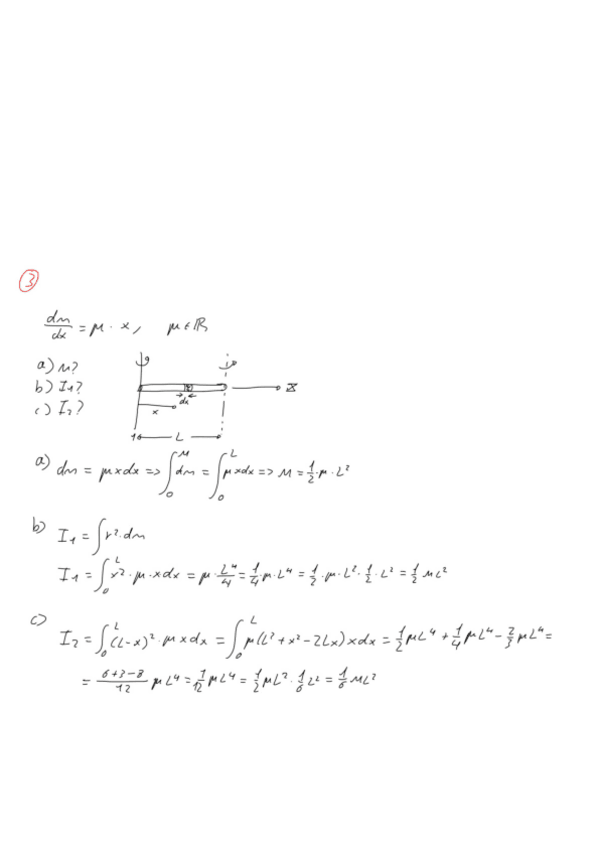 3
dm/dx = μ · x, μ ∈ ℝ
a) M?
b) I₁?
c) I₂?
dx
x
X
L
a) dm = μxdx => ∫₀ᴹ dm = ∫₀ᴸ μxdx => M = 1/2 · μ · L²
b) I₁ = ∫r² · dm
I₁ = ∫₀ᴸ x² · μ · xdx = μ · L⁴/4 = 1/4 · μ · L⁴ = 1/2 · μ · L² · 1/2 · L² = 1/2 ML²
c) I₂ = ∫₀ᴸ (L-x)² · μxdx = ∫₀ᴸ μ(L² + x² - 2Lx)xdx = 1/2 μL⁴ + 1/4 μL⁴ - 2/3 μL⁴ =
= (6+3-8)/12 μL⁴ = 1/12 μL⁴ = 1/2 μL² · 1/6 L² = 1/6 ML²